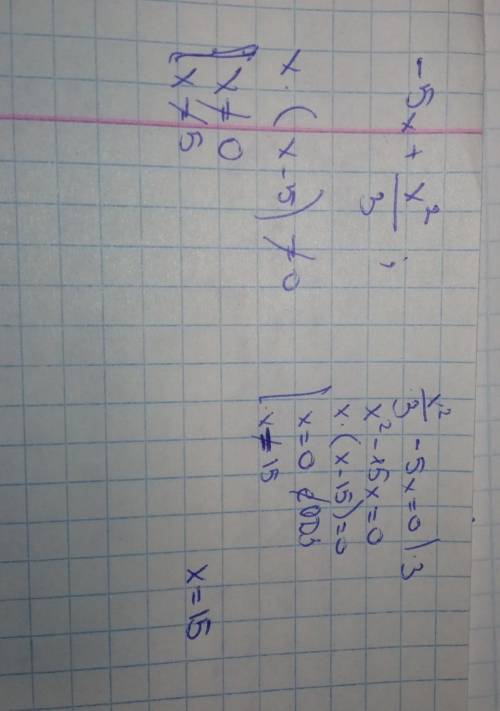 -5x + x²/3 ;
x · (x - 5) ≠ 0
[ x ≠ 0
x ≠ 5
x²/3 - 5x = 0 | · 3
x² - 15x = 0
x · (x - 15) = 0
[ x = 0 ∉ ОДЗ
x ≠ 15
x = 15